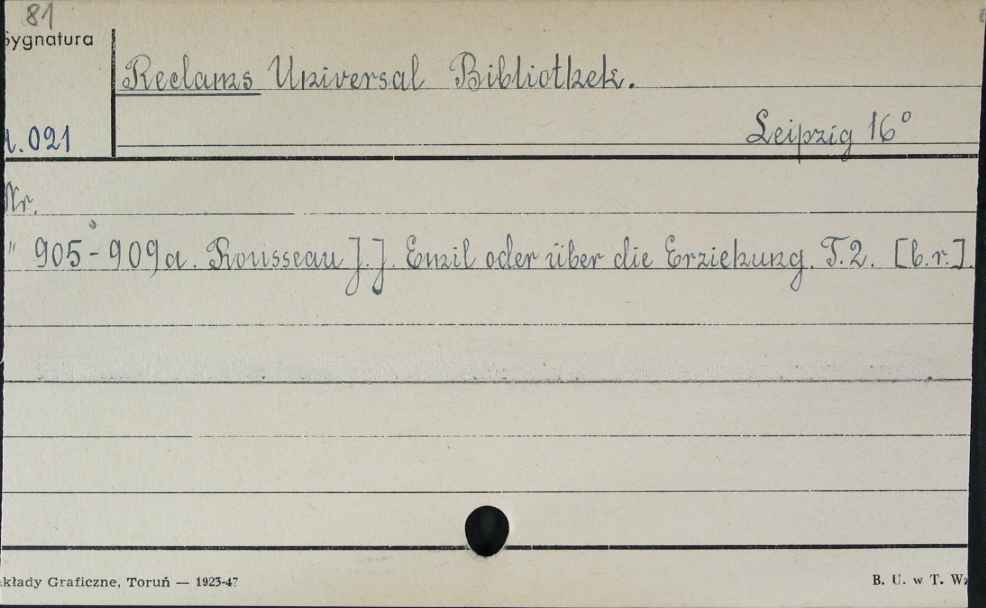 81
Sygnatura
Reclams Universal Bibliothek.
.021
Leipzig 16°
Nr.
" 905-909a. Rousseau J.J. Emil oder über die Erziehung. T.2. [b.r.].
kłady Graficzne, Toruń — 1923-47
B. U. w T. W